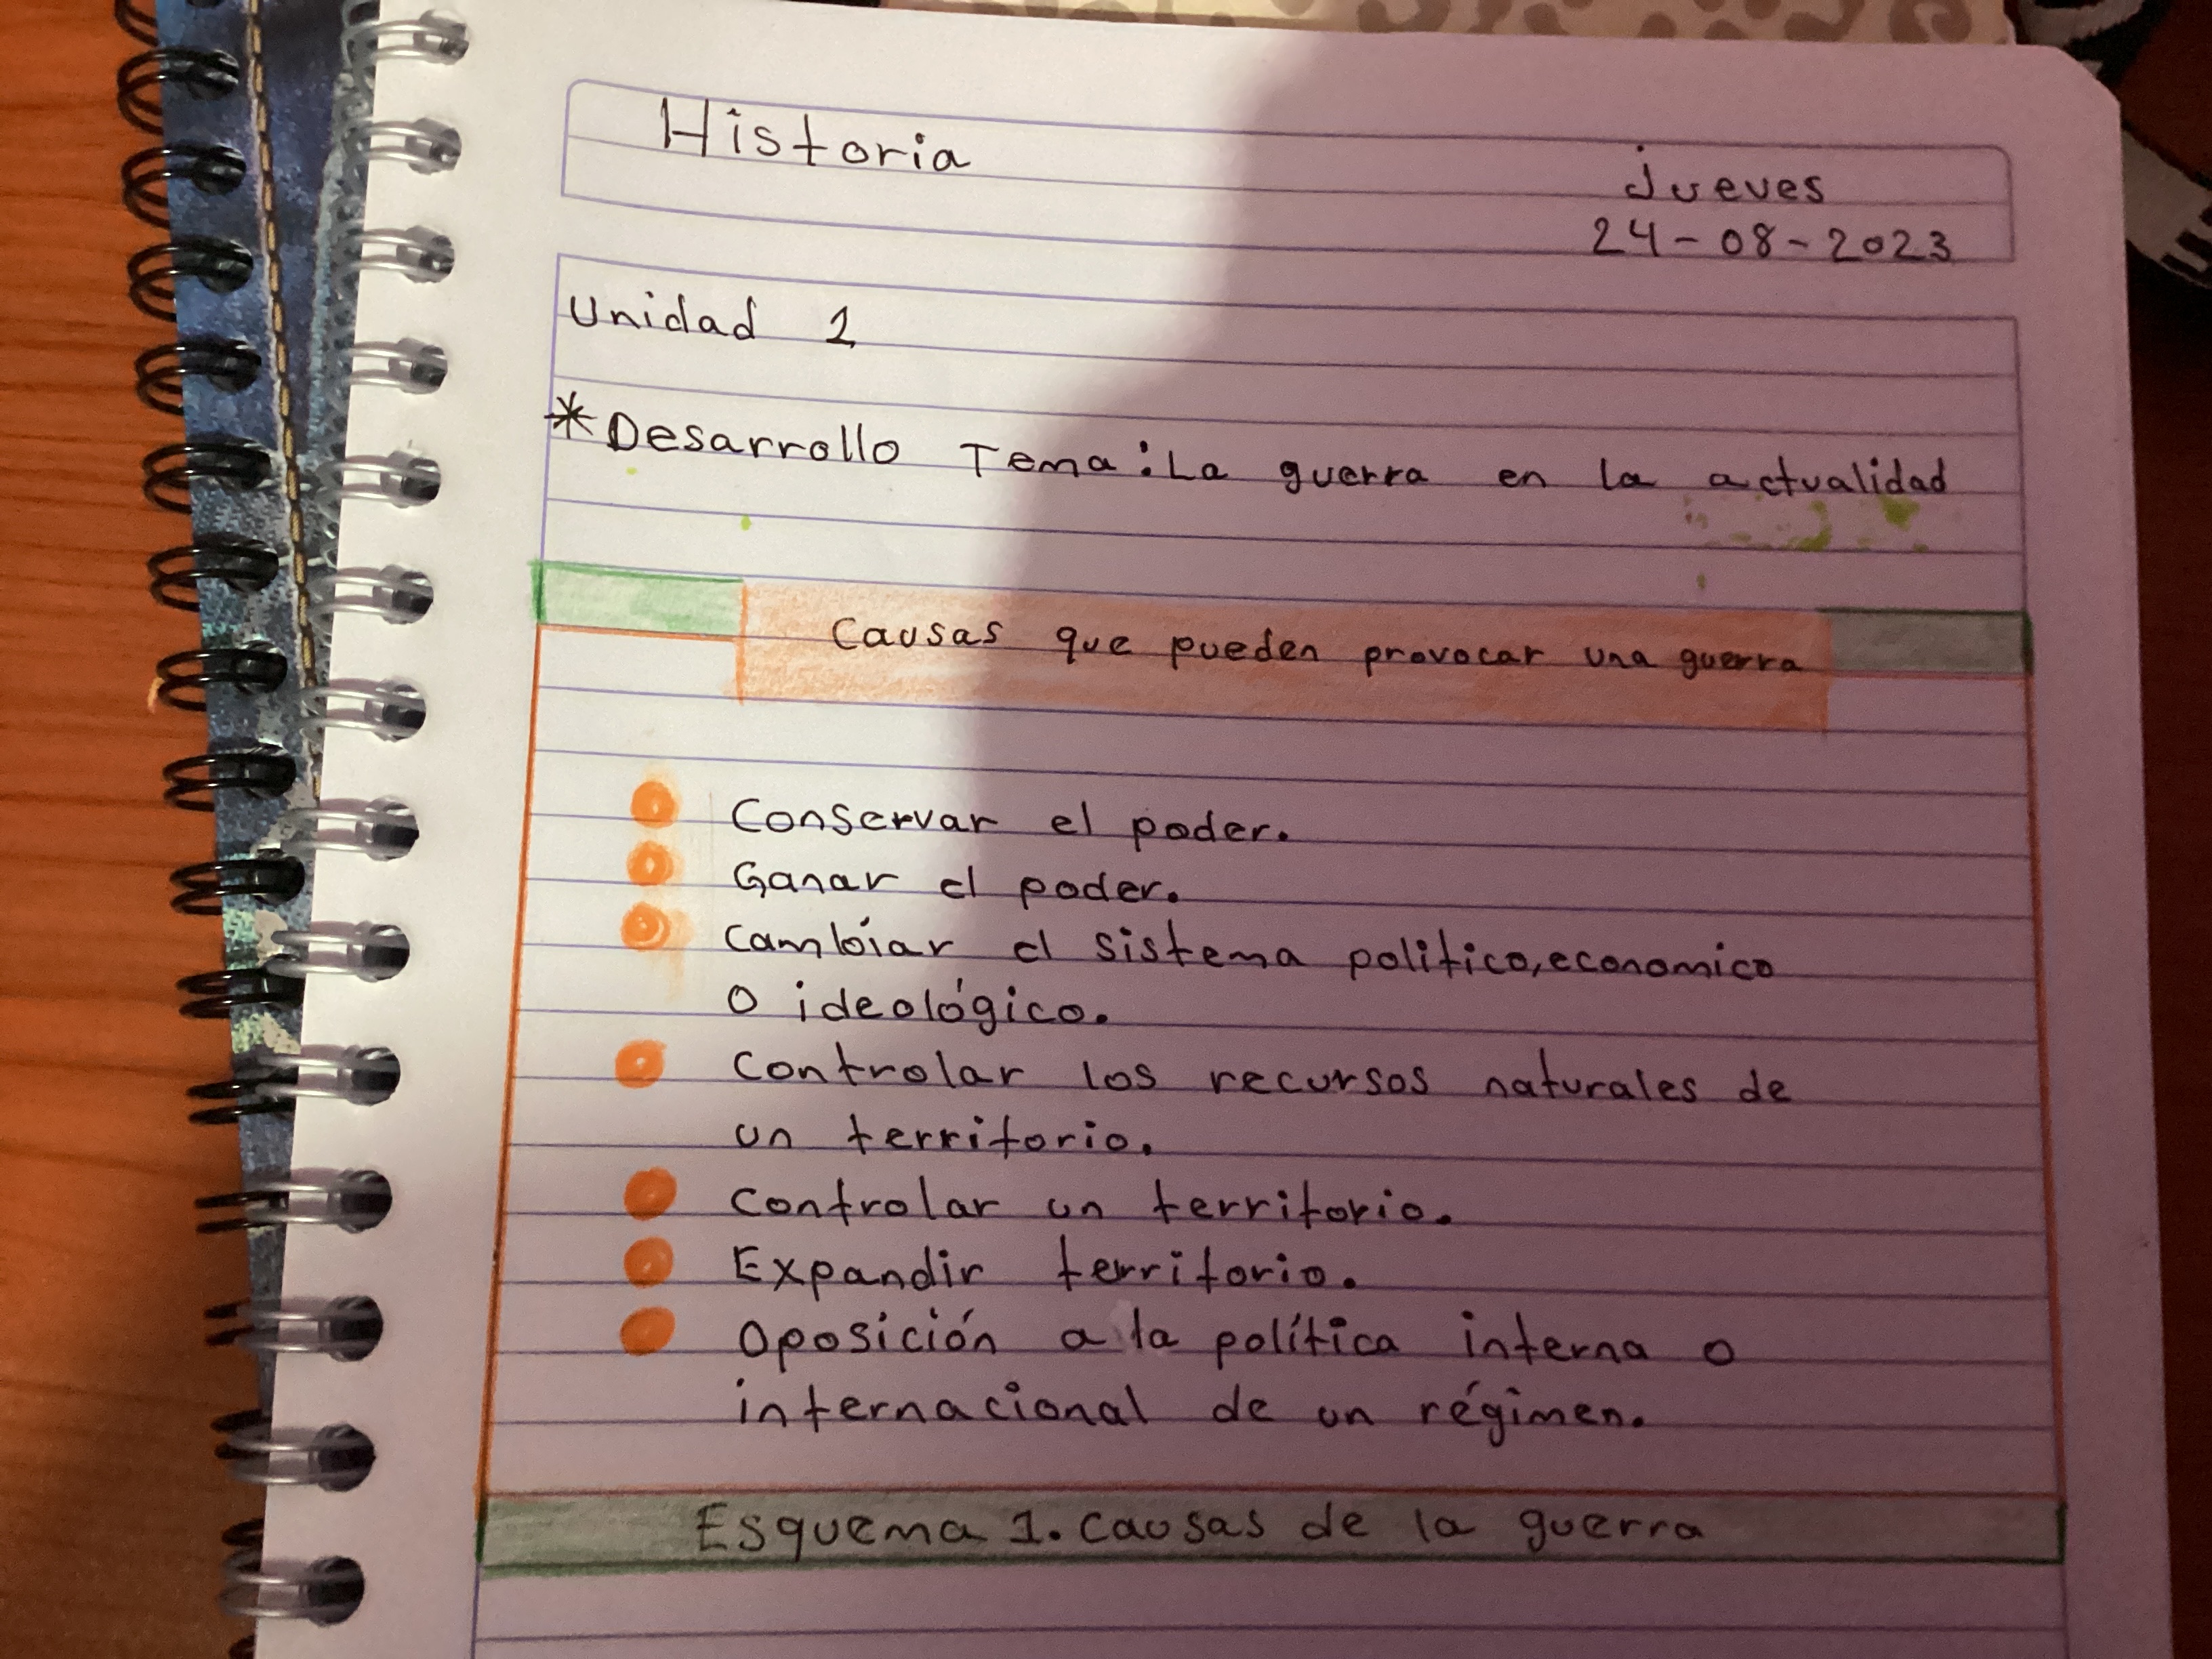 Historia
Jueves
24-08-2023
Unidad 1
*Desarrollo Tema: La guerra en la actualidad
Causas que pueden provocar una guerra
Conservar el poder.
Ganar el poder.
Cambiar el sistema politico, economico
o ideológico.
Controlar los recursos naturales de
un territorio.
Controlar un territorio.
Expandir territorio.
Oposición a la política interna o
internacional de un régimen.
Esquema 1. Causas de la guerra